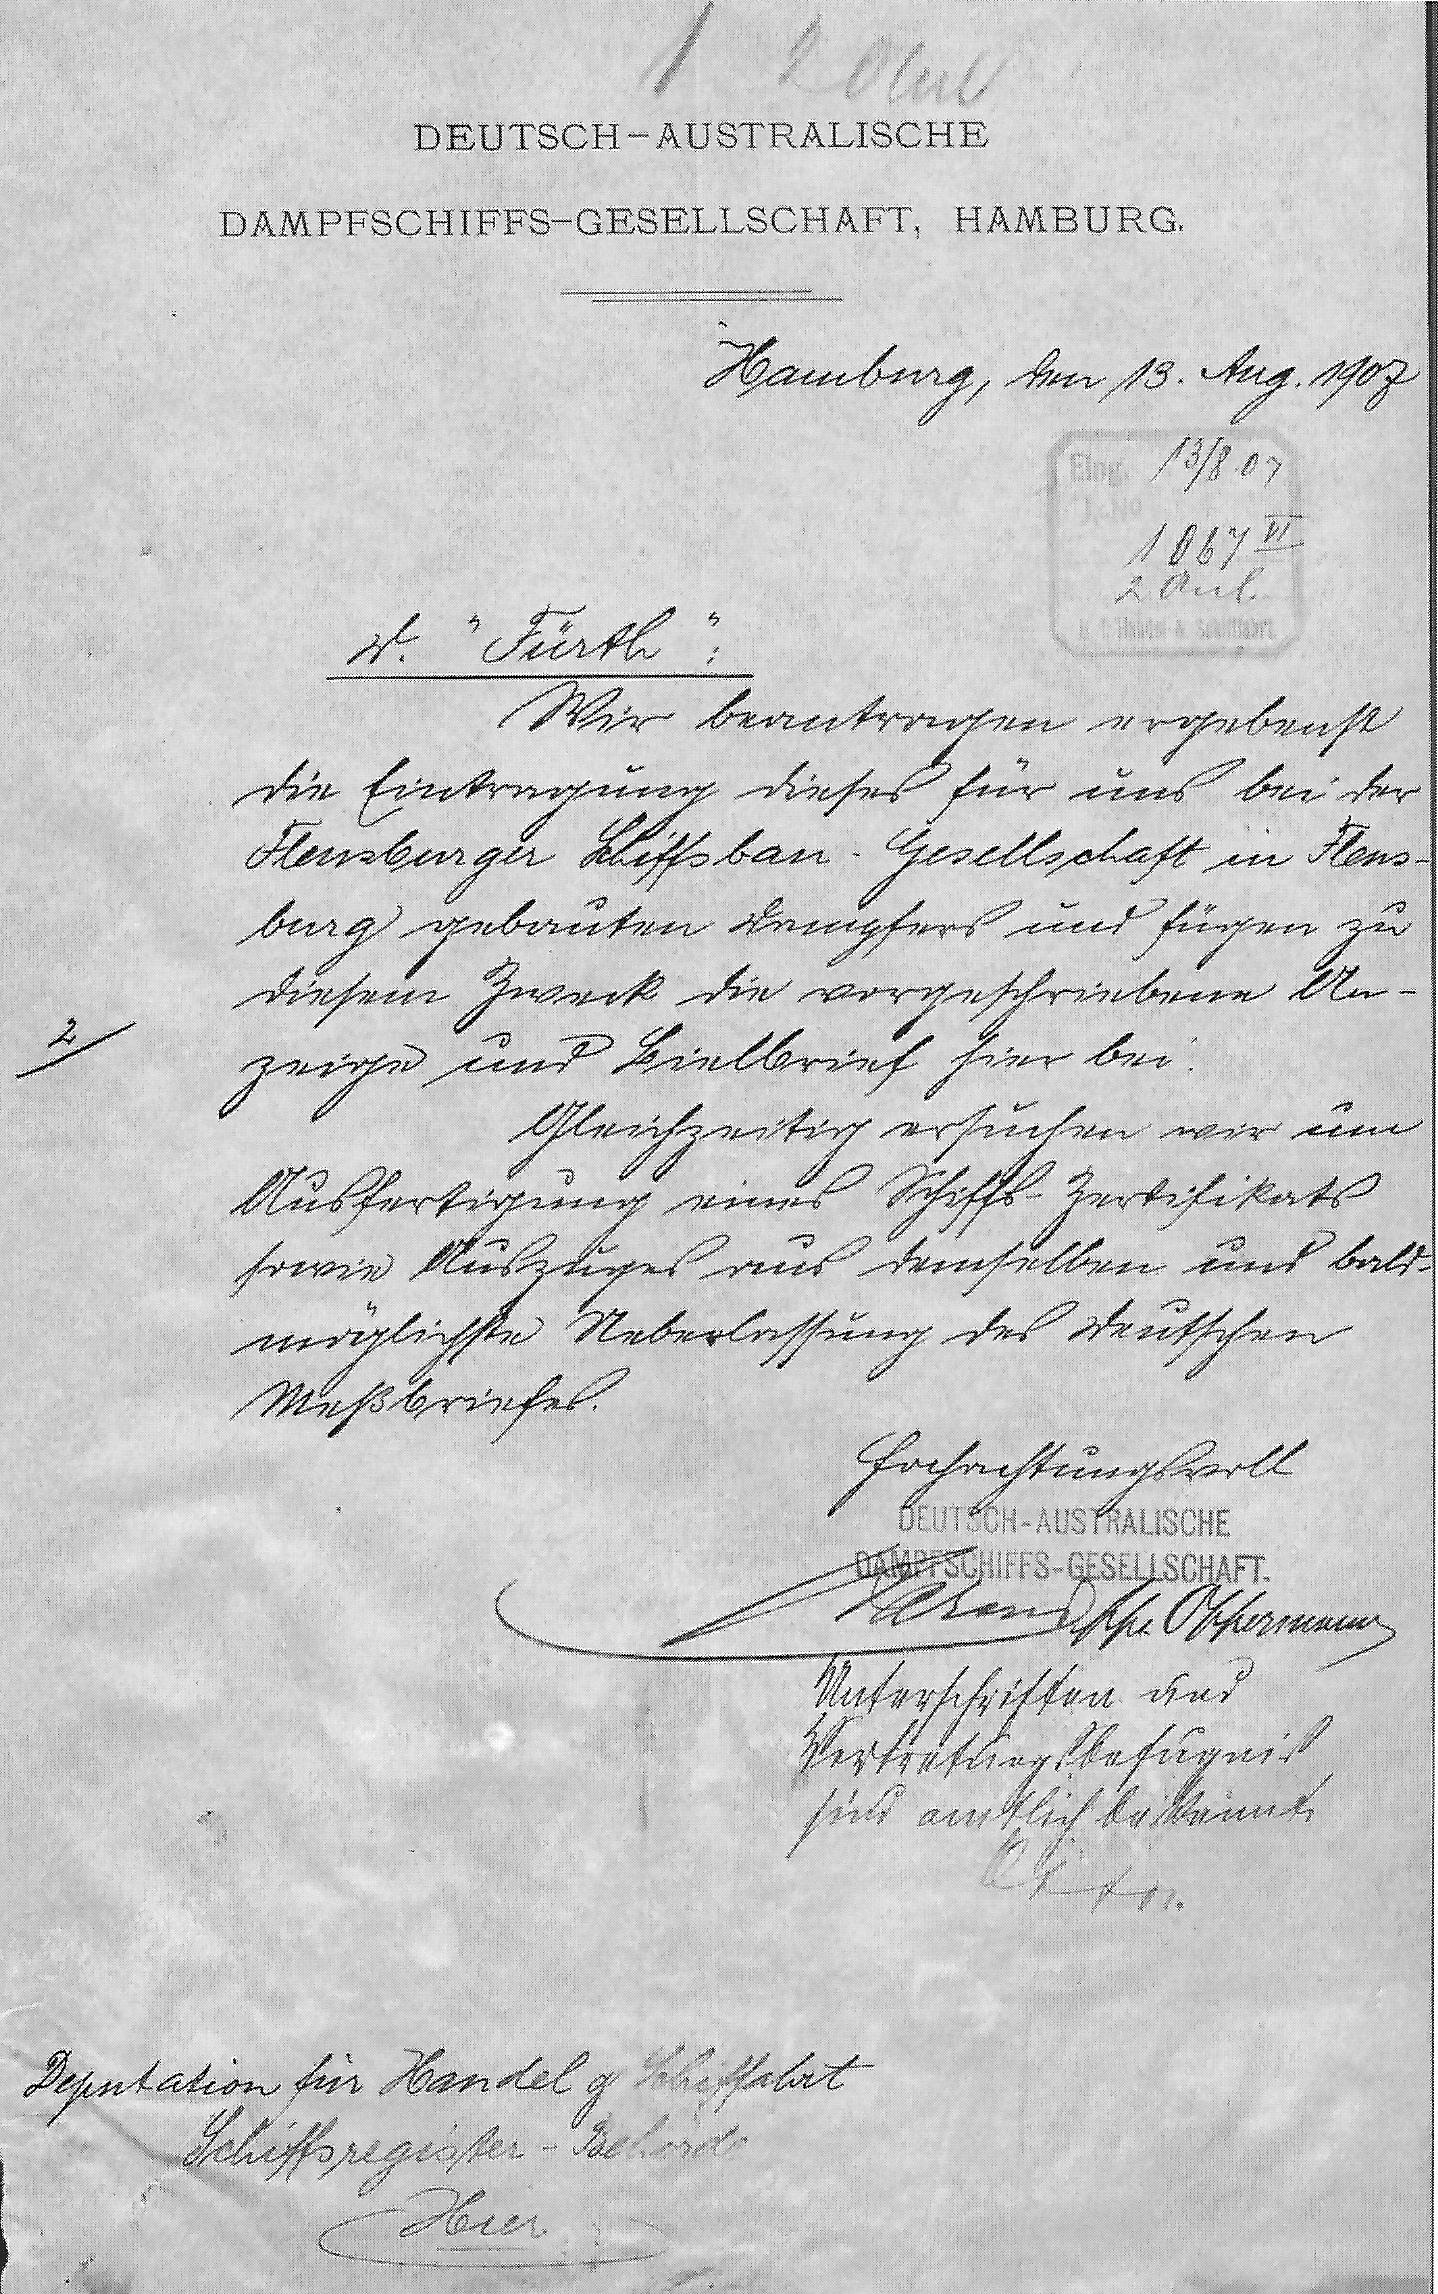 1 2 Anl
DEUTSCH-AUSTRALISCHE
DAMPFSCHIFFS-GESELLSCHAFT, HAMBURG.
Hamburg, den 13. Aug. 1907
Eing. 13/8 07
J. No
1067 VI
2 Anl.
D. "Fürth":
Wir beantragen ergebenst
die Eintragung dieses für uns bei der
Flensburger Schiffsbau-Gesellschaft in Flens-
burg gebauten Dampfers und fügen zu
diesem Zweck die vorgeschriebene An-
2
zeige und Bielbrief hier bei.
Gleichzeitig ersuchen wir um
Ausfertigung eines Schiffs-Zertifikats
sowie Auszuges aus demselben und bald-
möglichste Ueberlassung des deutschen
Meßbriefes.
Hochachtungsvoll
DEUTSCH-AUSTRALISCHE
DAMPFSCHIFFS-GESELLSCHAFT.
ppa. Oppermann
Unterschriften und
Vertretungsbefugnis
sind amtlich bekannt.
Deputation für Handel & Schiffahrt
Schiffsregister-Behörde
Hier